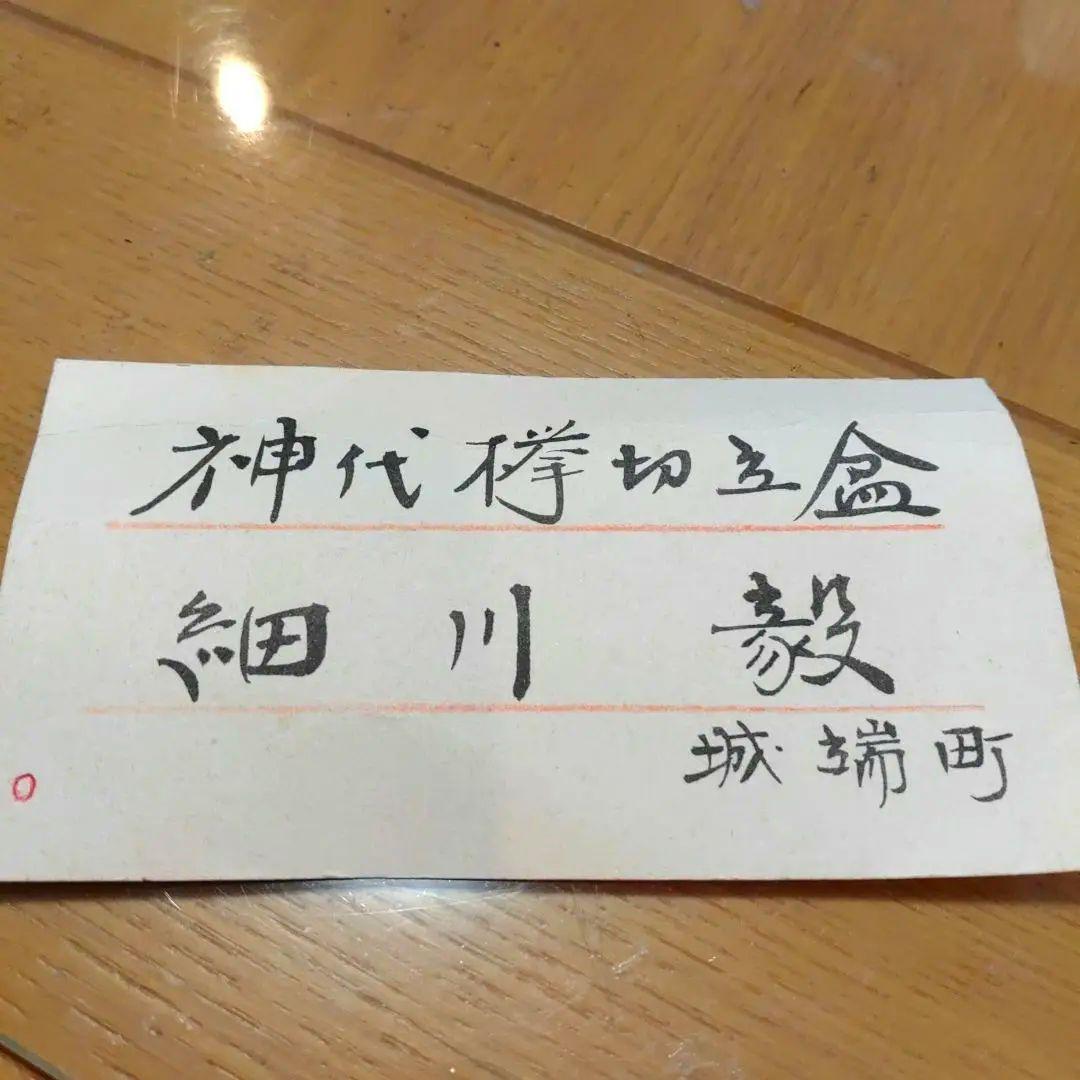 神代欅切立盆
細川 毅
城端町